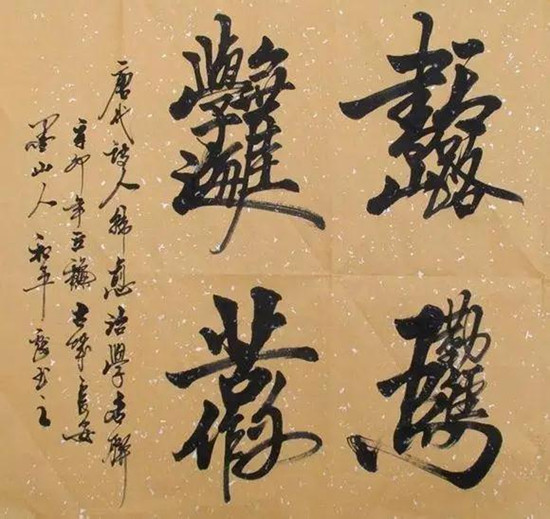 書山有路
勤為徑
學海無涯
苦作舟
唐代詩人韩愈治學名聯
辛卯年 古城長安
山人和平 书之